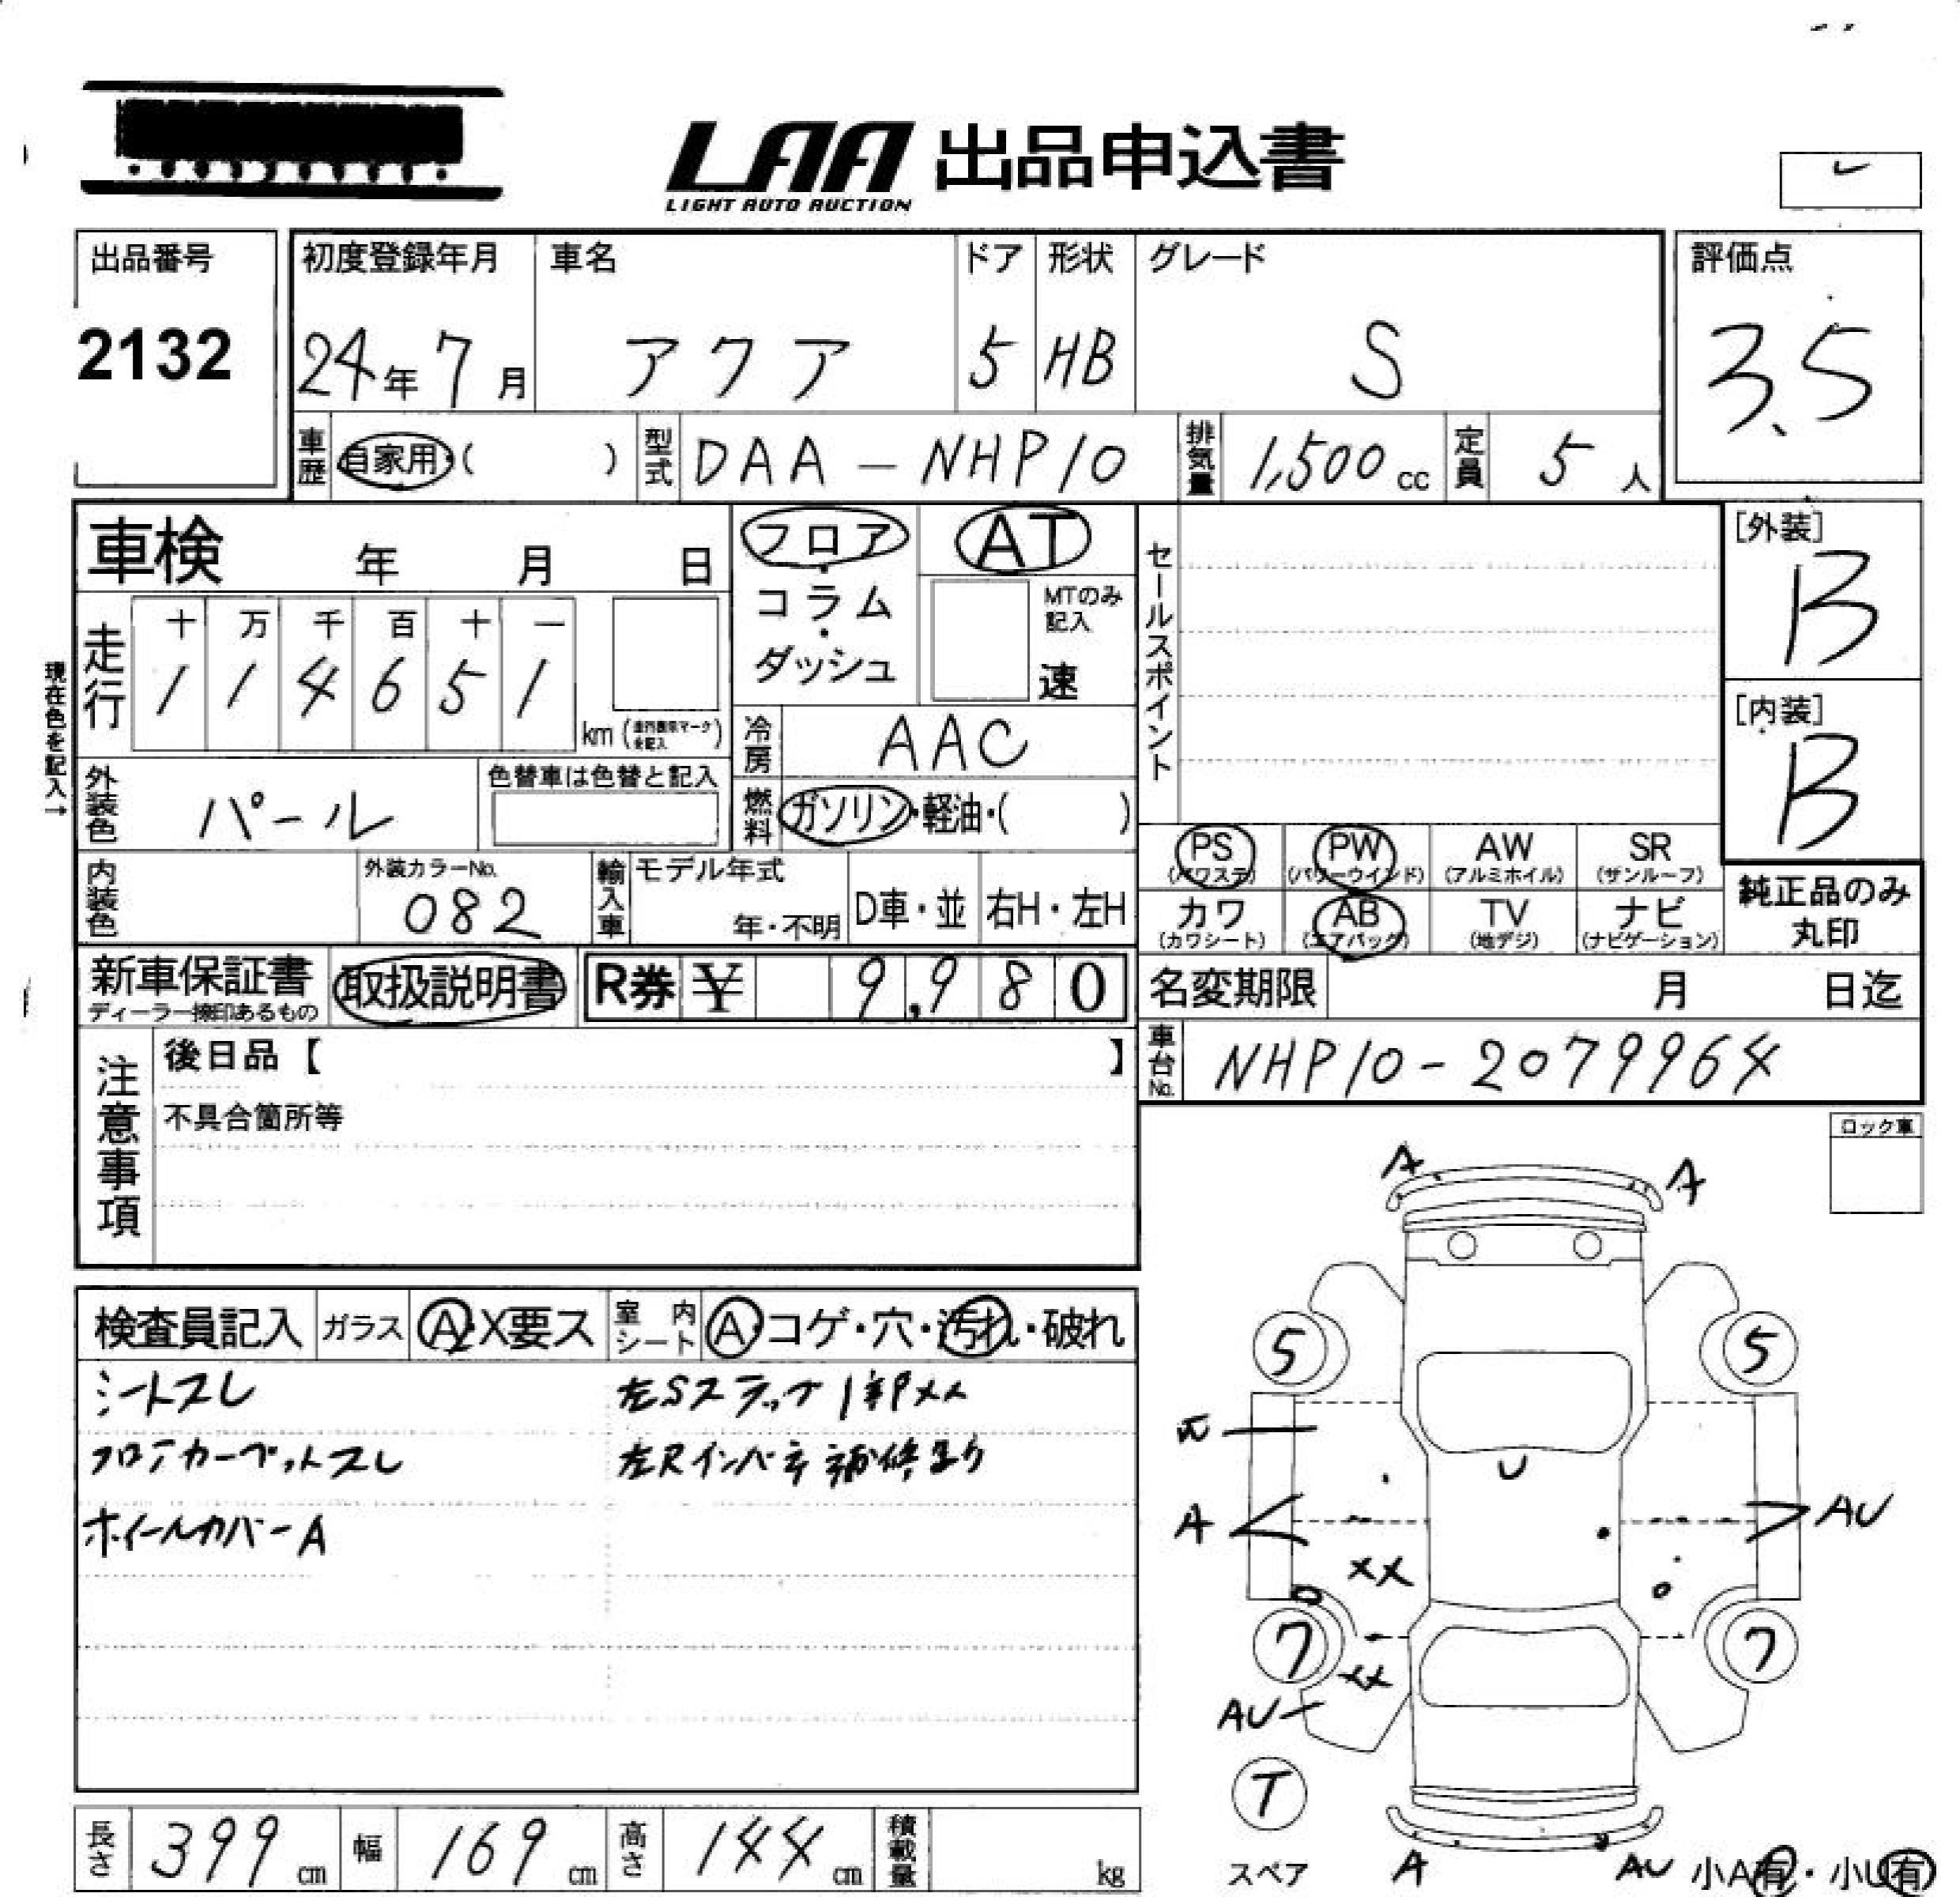 LAA 出品申込書
LIGHT AUTO AUCTION
出品番号
2132
初度登録年月
24年 7月
車名
アクア
ドア
5
形状
HB
グレード
S
評価点
3.5
車歴
自家用・( )
型式
DAA-NHP10
排気量
1,500 cc
定員
5 人
車検 年 月 日
フロア・コラム・ダッシュ
AT
MTのみ記入
速
セールスポイント
[外装]
B
[内装]
B
現在色を記入→
走行
十 万 千 百 十 一
1 1 4 6 5 1
km (走行表示マークを記入)
冷房
AAC
外装色
パール
色替車は色替と記入
燃料
ガソリン・軽油・( )
PS (パワステ)
PW (パワーウインド)
AW (アルミホイル)
SR (サンルーフ)
カワ (カワシート)
AB (エアバック)
TV (地デジ)
ナビ (ナビゲーション)
純正品のみ丸印
内装色
外装カラーNo.
082
輸入車
モデル年式
年・不明
D車・並
右H・左H
新車保証書
ディーラー捺印あるもの
取扱説明書
R券 ¥ 9,980
名変期限 月 日迄
車台No.
NHP10-2079964
注意事項
後日品【 】
不具合箇所等
ロック車
検査員記入
ガラス
A・X要ス
室内シート
A・コゲ・穴・汚れ・破れ
シートスレ
左Sステップ
フロアカーペットスレ
左Rインパネ補修有り
ホイールカバーA
A
A
5
5
U
A
AU
XX
7
7
XX
AU
T
スペア
A
AU
小A有・小U有
長さ
399 cm
幅
169 cm
高さ
144 cm
積載量
kg